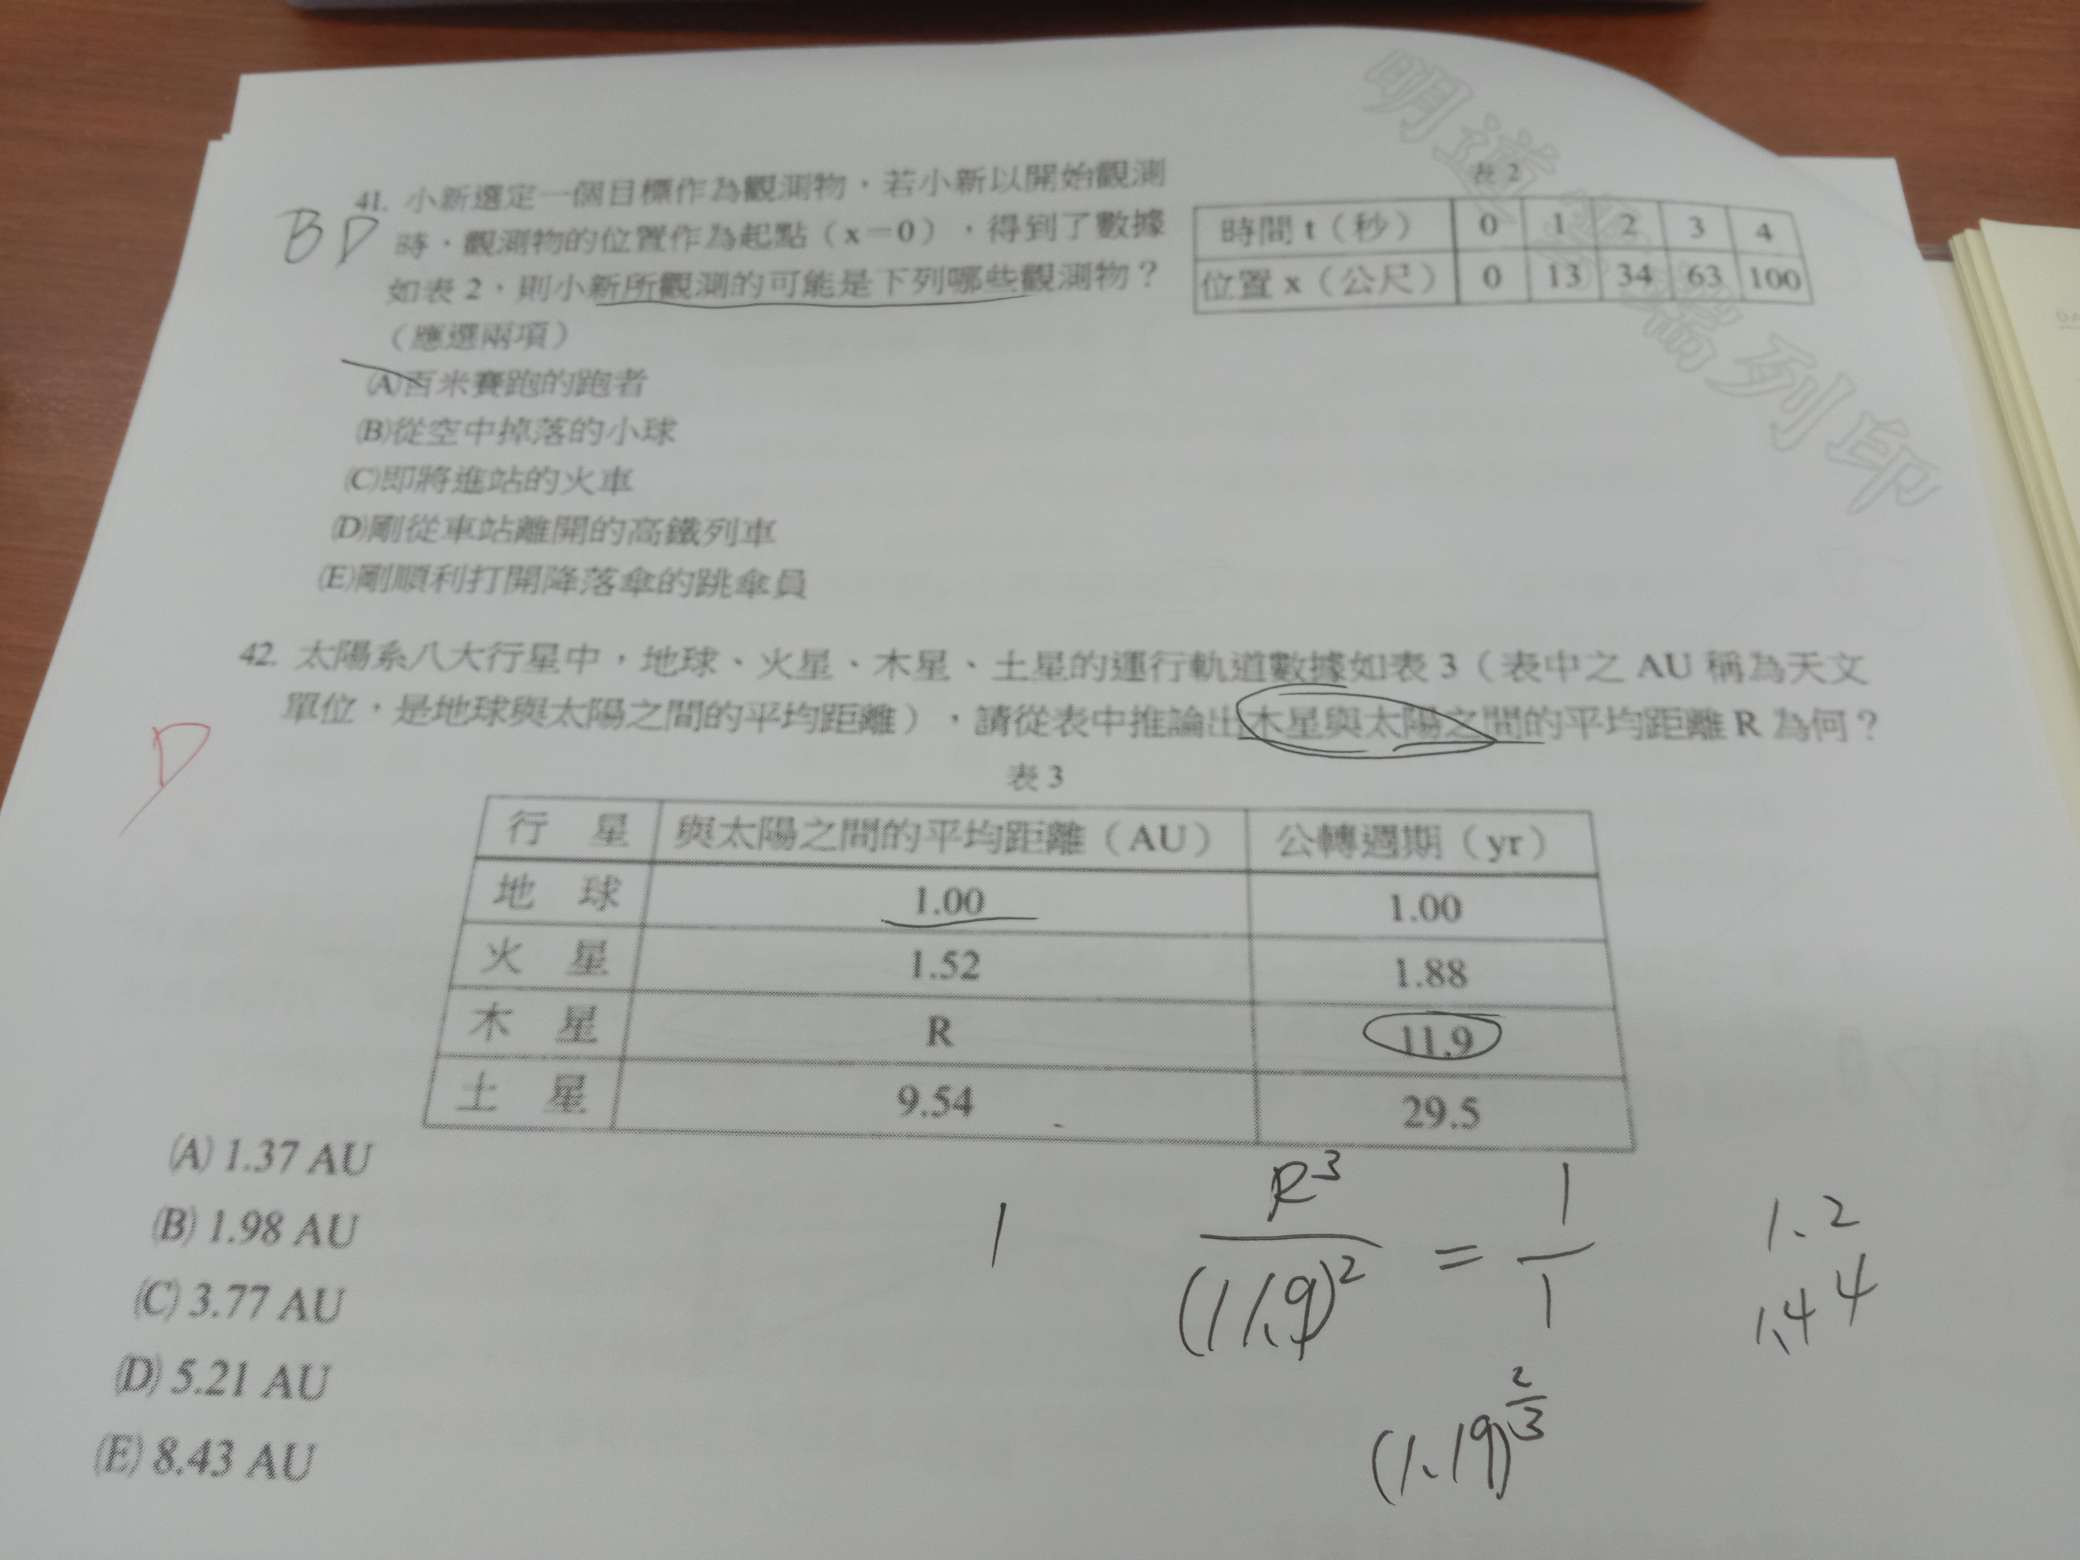 明道
列印
41. 小新選定一個目標作為觀測物，若小新以開始觀測
時，觀測物的位置作為起點（x＝0），得到了數據
如表 2，則小新所觀測的可能是下列哪些觀測物？
（應選兩項）
BD
表 2
時間 t（秒） 0 1 2 3 4
位置 x（公尺） 0 13 34 63 100
(A)百米賽跑的跑者
(B)從空中掉落的小球
(C)即將進站的火車
(D)剛從車站離開的高鐵列車
(E)剛順利打開降落傘的跳傘員
42. 太陽系八大行星中，地球、火星、木星、土星的運行軌道數據如表 3（表中之 AU 稱為天文
單位，是地球與太陽之間的平均距離），請從表中推論出木星與太陽之間的平均距離 R 為何？
D
表 3
行 星 與太陽之間的平均距離（AU） 公轉週期（yr）
地 球 1.00 1.00
火 星 1.52 1.88
木 星 R 11.9
土 星 9.54 29.5
(A) 1.37 AU
(B) 1.98 AU
(C) 3.77 AU
(D) 5.21 AU
(E) 8.43 AU
1
R³/(11.9)² = 1/1
(1.19)^2/3
1.2
1.44